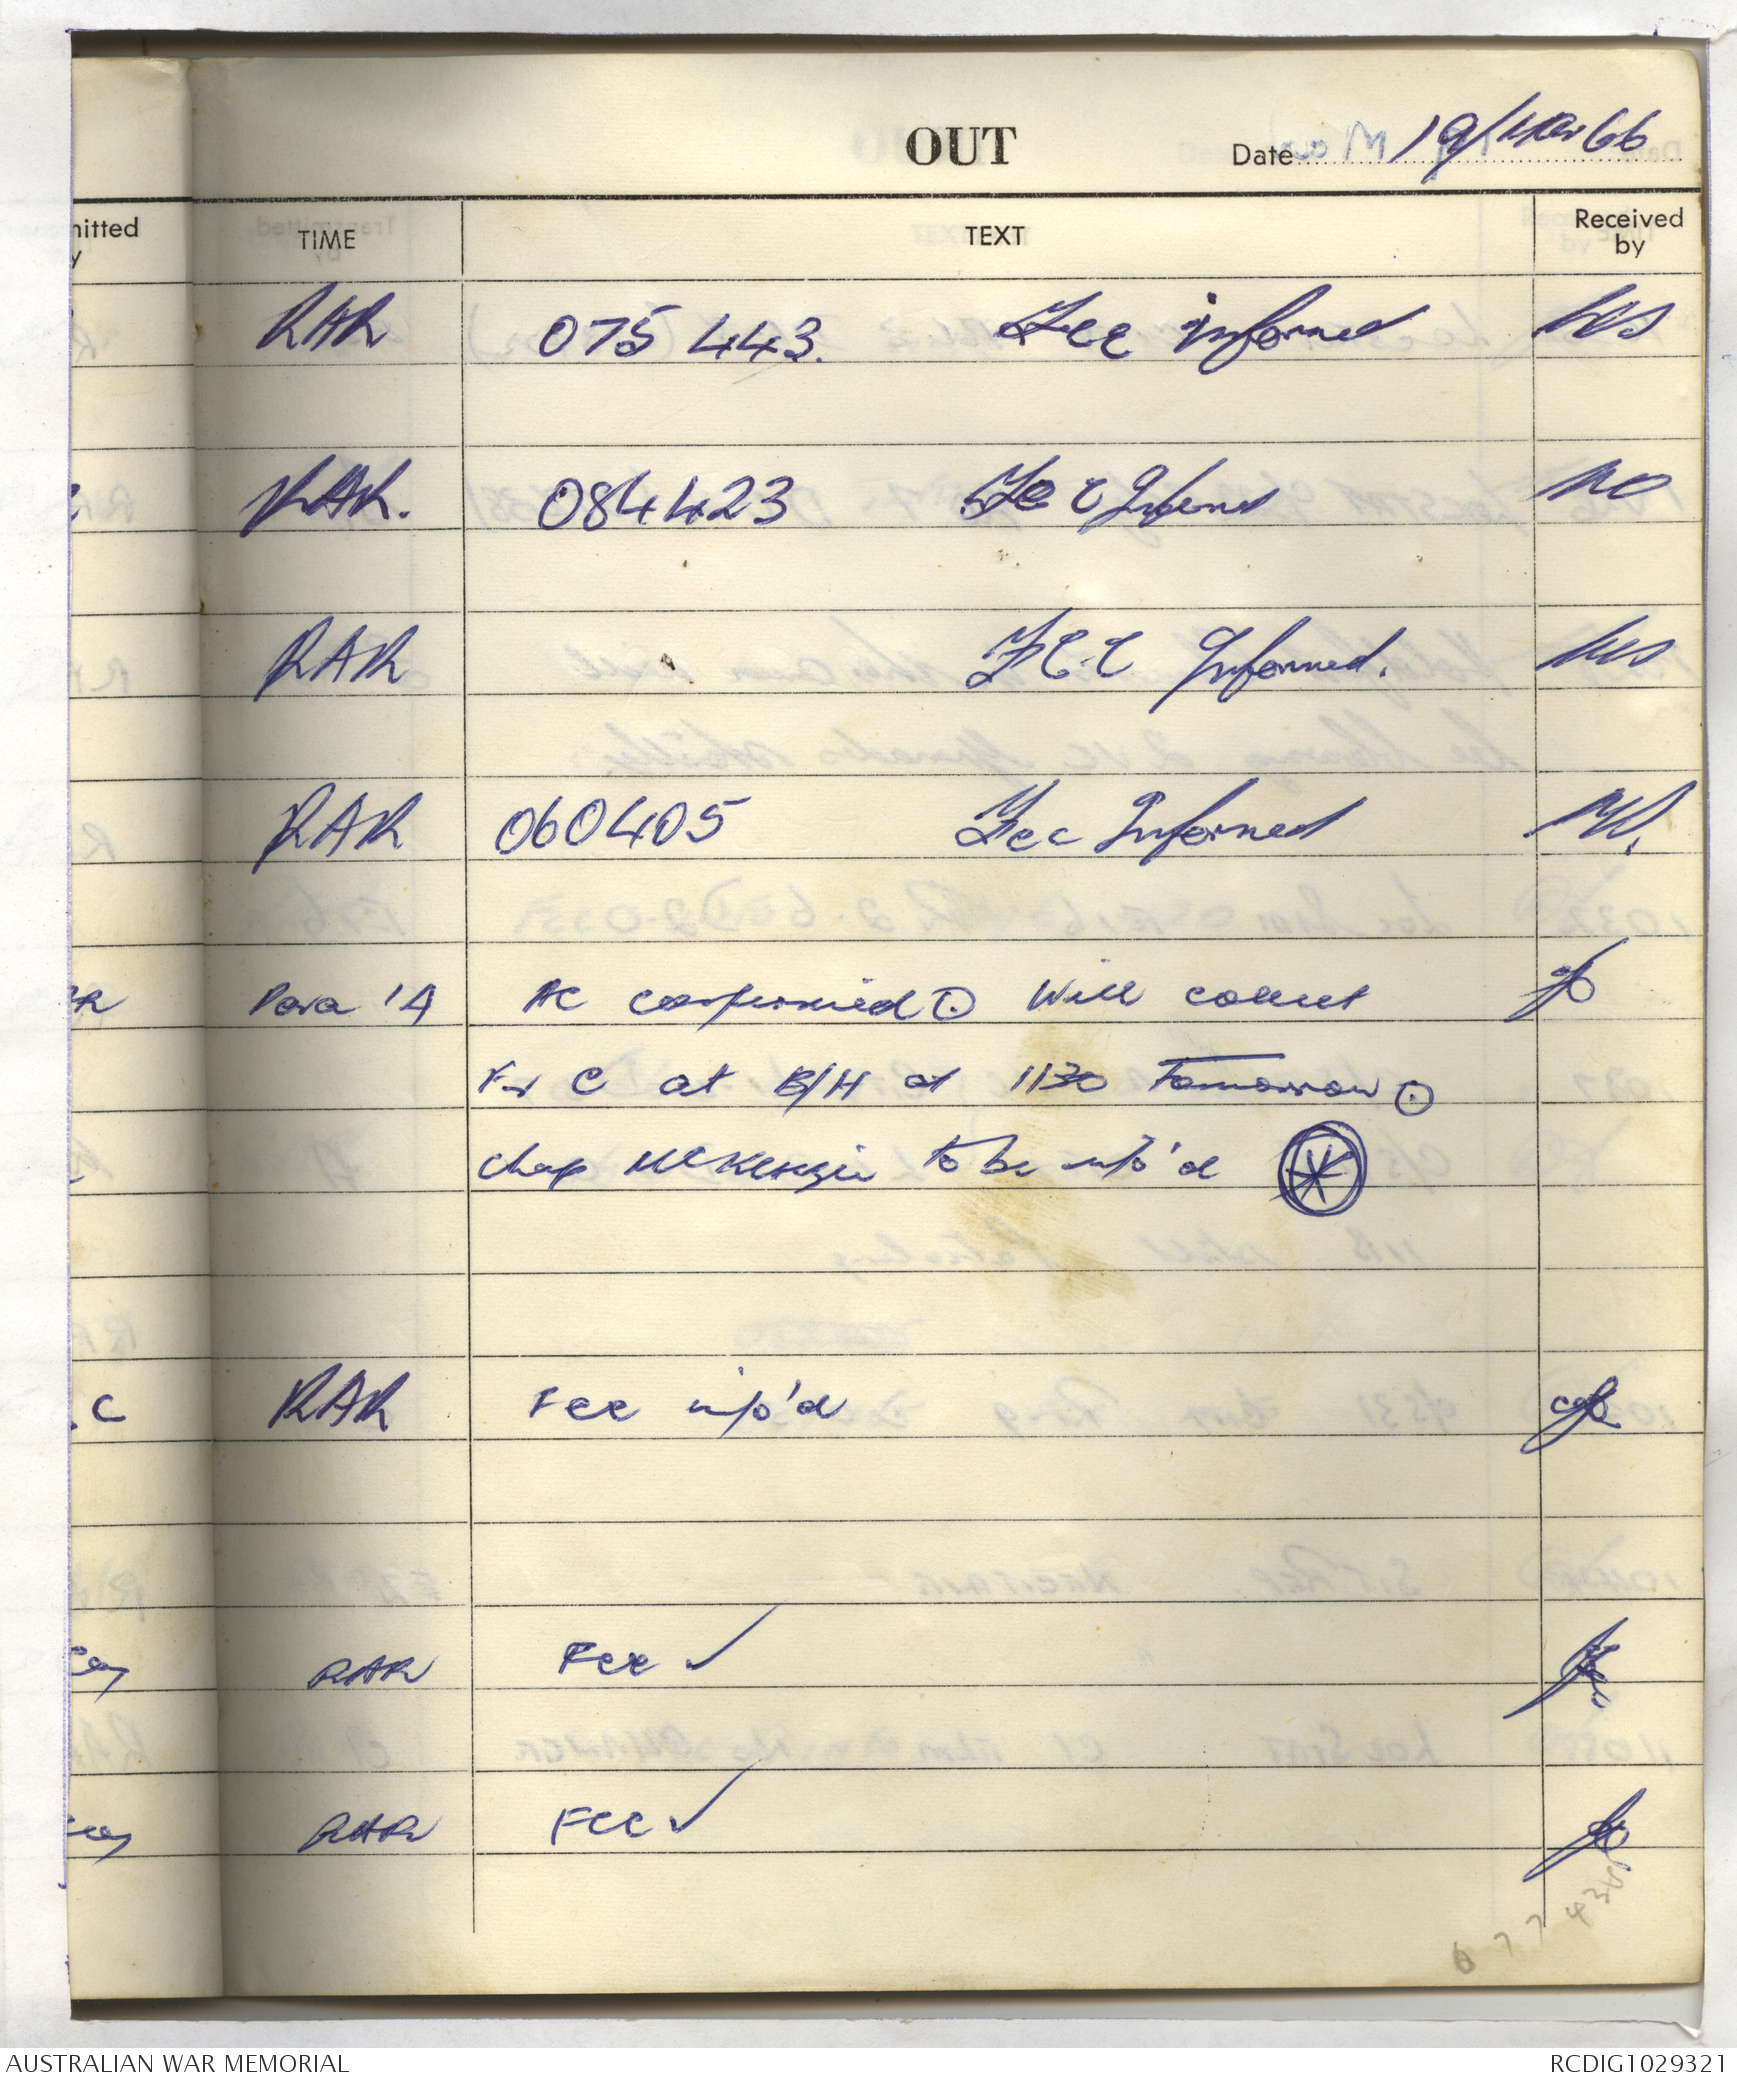 OUT Date 19/Mar 66
mitted y TIME TEXT Received by
RAR 075 443. Fee informed
RAR. 084423 Fee Informed
RAR FEE Informed.
RAR 060405 Fee Informed
R Para 'A AC confirmed ⊙ Will collect
C at B/H at 1130 Tomorrow ⊙
Chap McKenzie to be info'd
C RAR Fee info'd
RAR Fee ✓
RAR Fee ✓
AUSTRALIAN WAR MEMORIAL RCDIG1029321